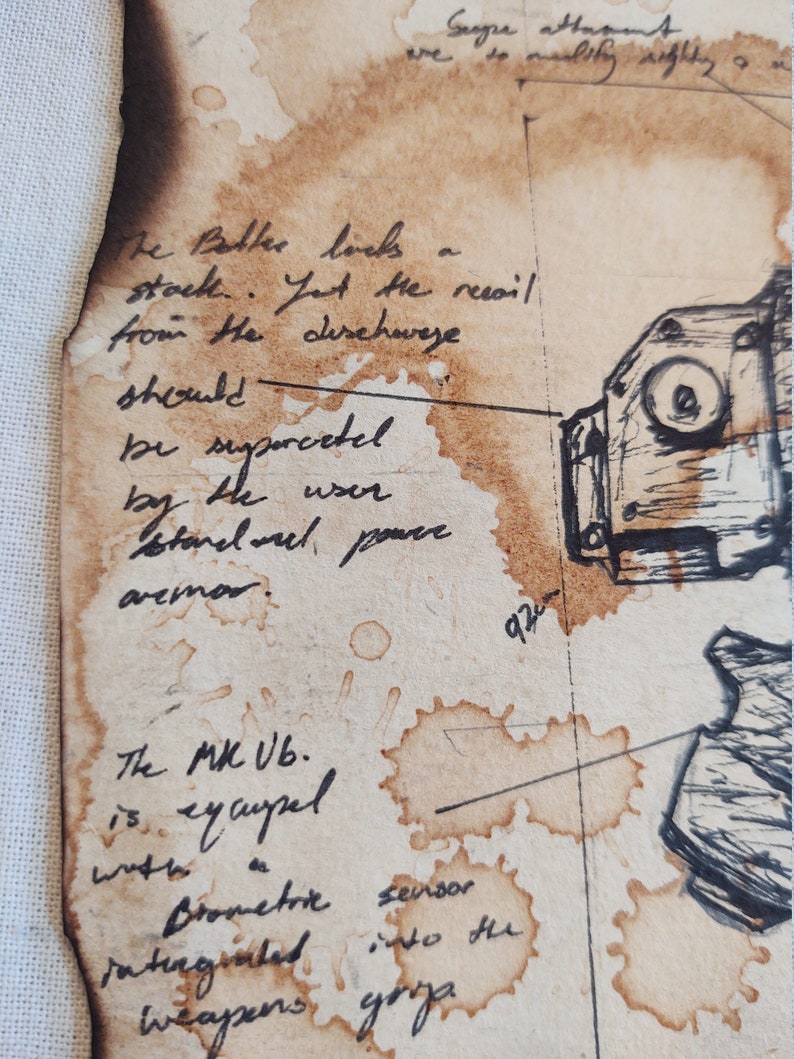 are to modify
The Bolter lacks a
stock.. Yet the recoil
from the discharge
should
be supported
by the user
standard power
armor.
92cm
The MK Vb.
is equiped
with a
Biometric sensor
intergrated into the
weapons grip.